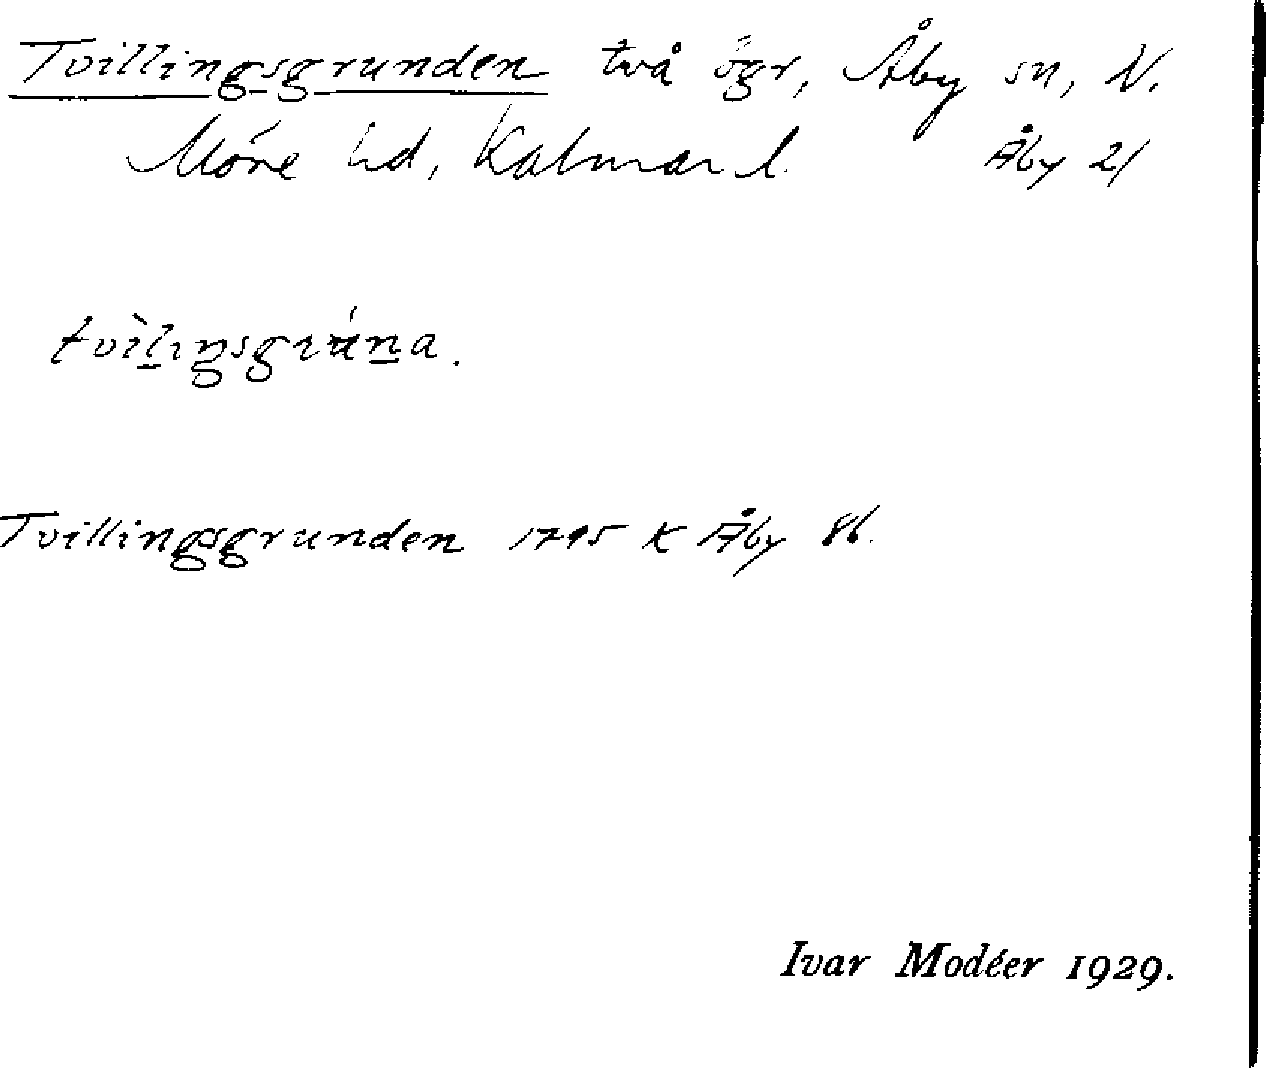 Tvillingsgrunden två ögr, Åby sn, N.
Möre hd, Kalmar l. Åby 21
tvìl̲ıŋsgrún̲a.
Tvillingsgrunden 1795 K Åby 86.
Ivar Modéer 1929.